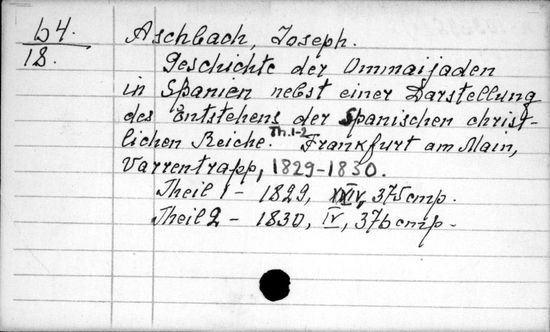 64.
18.
Aschbach, Joseph.
Geschichte der Ommaijaden
in Spanien nebst einer Darstellung
des Entstehens der Spanischen christ-
lichen Reiche. Th.1-2 Frankfurt am Main,
Varrentrapp, 1829-1830.
Theil 1 - 1829, XIV, 375 стр.
Theil 2 - 1830, IV, 376 стр.